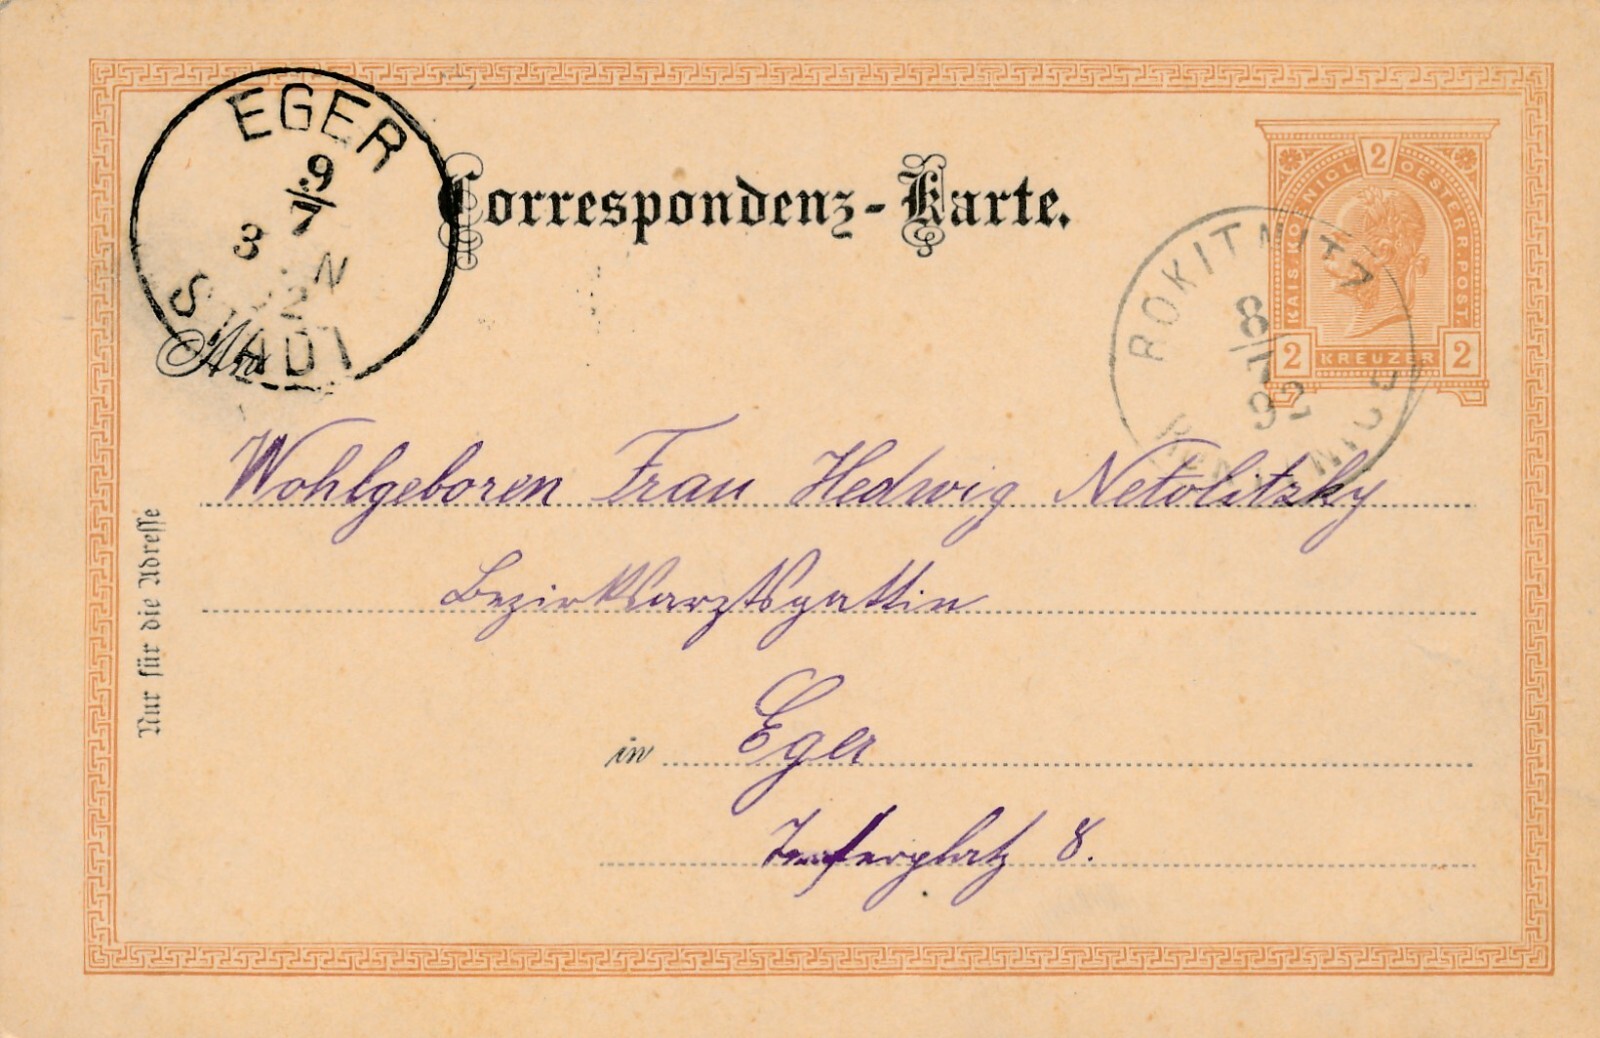 EGER
9/7
3 N
92
STADT
Correspondenz-Karte.
KAIS. KÖNIGL. OESTERR. POST.
2
2 KREUZER 2
ROKITNITZ
8/7
92
An
Wohlgeboren Frau Hedwig Netolitzky
Bezirksarztsgattin
in Eger
8.
Nur für die Adresse